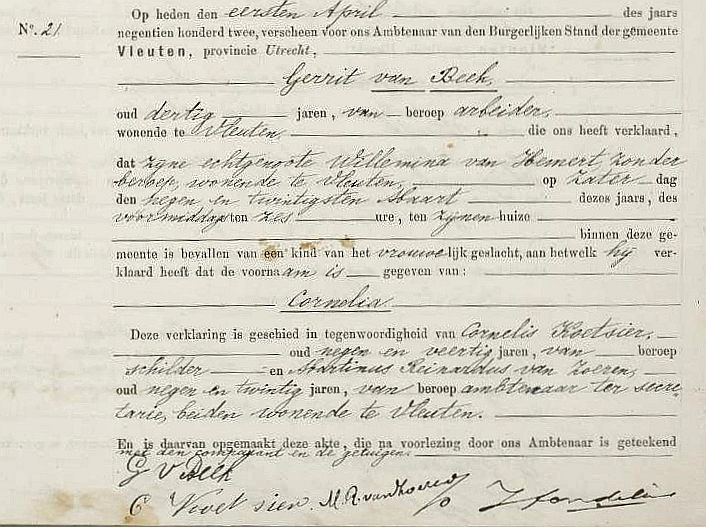 Op heden den eersten April des jaars
N°. 21. negentien honderd twee, verscheen voor ons Ambtenaar van den Burgerlijken Stand der gemeente
Vleuten, provincie Utrecht,
Gerrit van Beek,
oud dertig jaren, van beroep arbeider,
wonende te Vleuten, die ons heeft verklaard,
dat zijne echtgenoote Willemina van Hemert, zonder
beroep, wonende te Vleuten, op Zaterdag
den negen en twintigsten Maart dezes jaars, des
voormiddags ten zes ure, ten zijnen huize
binnen deze ge-
meente is bevallen van een kind van het vrouwelijk geslacht, aan hetwelk hij ver-
klaard heeft dat de voornaam is gegeven van:
Cornelia.
Deze verklaring is geschied in tegenwoordigheid van Cornelis Koetsier,
oud negen en veertig jaren, van beroep
schilder en Martinus Reinardus van Zoeren,
oud negen en twintig jaren, van beroep ambtenaar ter secre-
tarie, beiden wonende te Vleuten.
En is daarvan opgemaakt deze akte, die na voorlezing door ons Ambtenaar is geteekend
met den comparant en de getuigen.
G v Beek
C Koetsier. M. R. van Zoeren